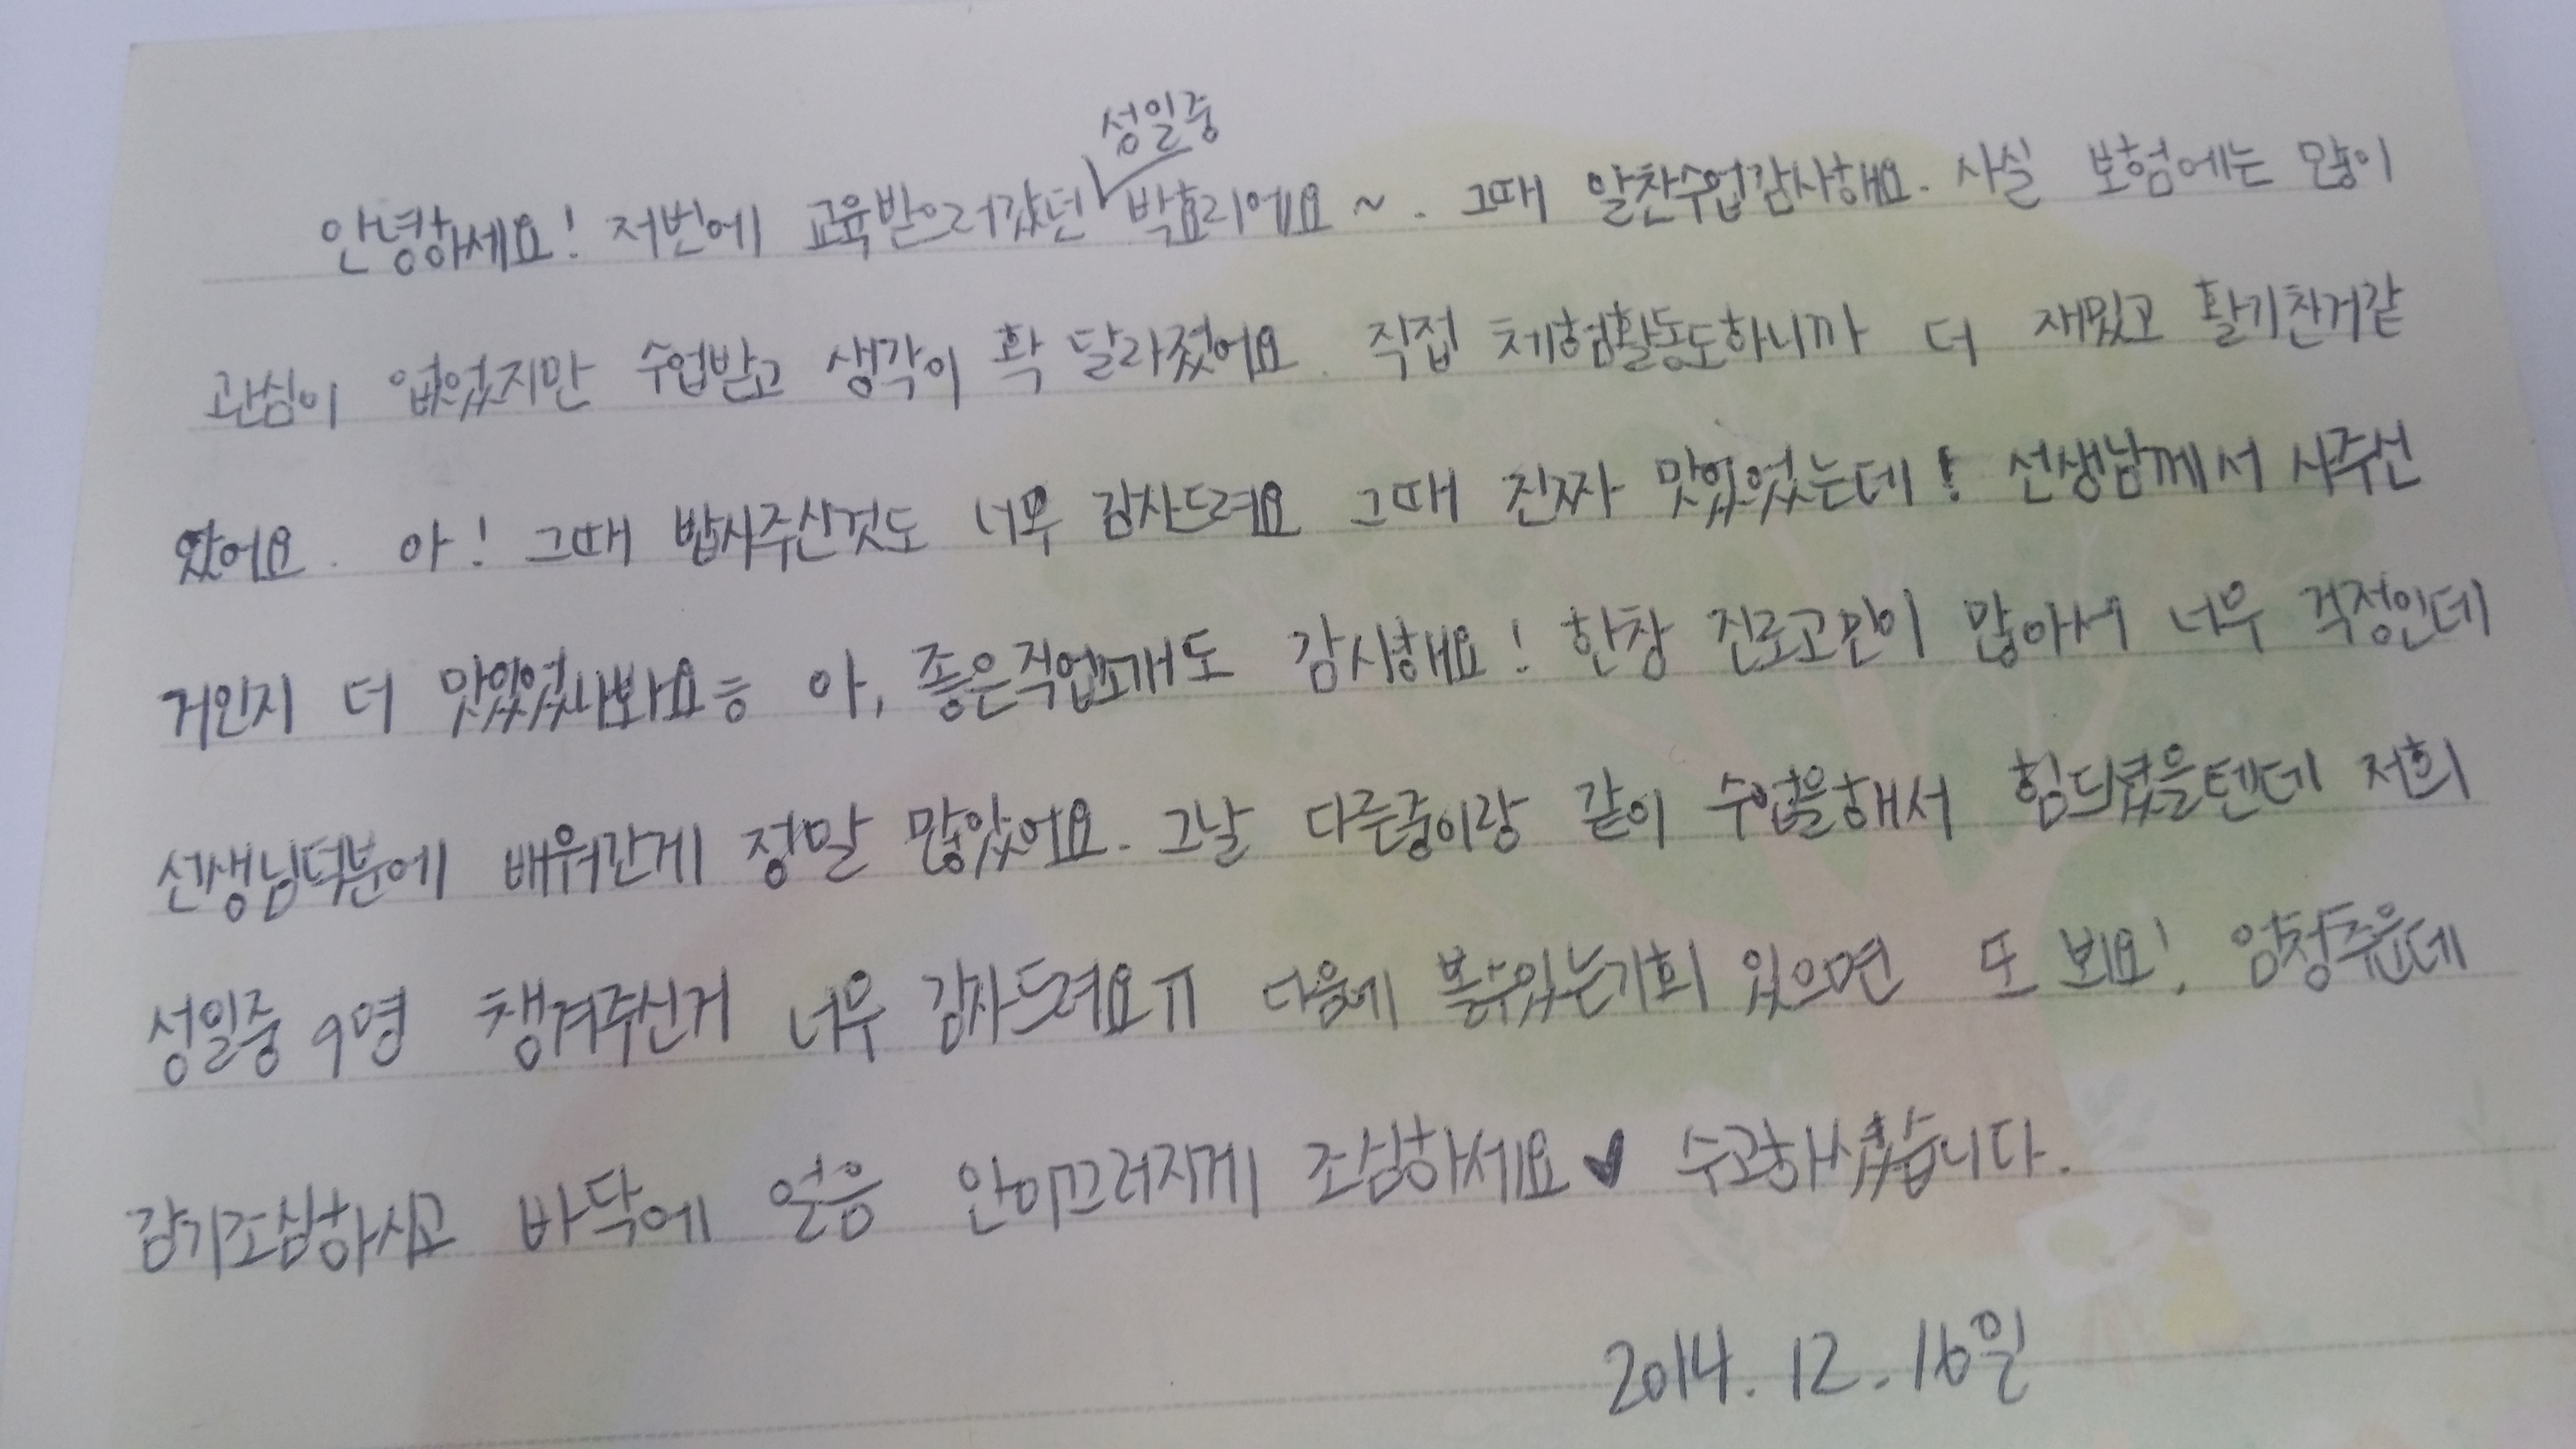 성일중
안녕하세요! 저번에 교육받으러갔던 박효리에요~. 그때 알찬수업감사해요. 사실 보험에는 많이
관심이 없었지만 수업받고 생각이 확 달라졌어요. 직접 체험활동도하니까 더 재밌고 활기찬거같
았어요. 아! 그때 밥사주신것도 너무 감사드려요 그때 진짜 맛있었는데! 선생님께서 사주신
거인지 더 맛있었나봐요ㅎ 아, 좋은직업소개도 감사해요! 한창 진로고민이 많아서 너무 걱정인데
선생님덕분에 배워간게 정말 많았어요. 그날 다른중이랑 같이 수업을해서 힘드셨을텐데 저희
성일중 9명 챙겨주신거 너무 감사드려요ㅠ 다음에 볼수있는기회 있으면 또 뵈요! 엄청추운데
감기조심하시고 바닥에 얼음 안미끄러지게 조심하세요♥ 수고하셨습니다.
2014. 12. 16일